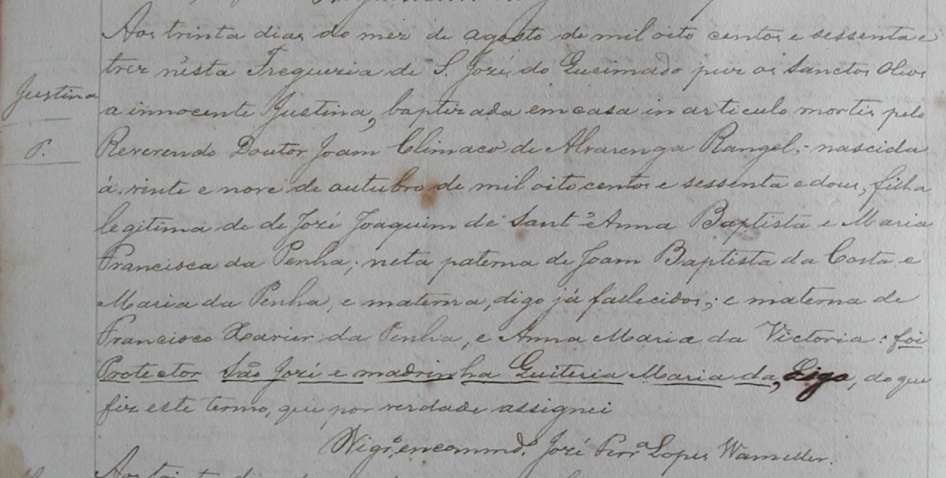 Aos trinta dias do mez de agosto de mil oito centos e sessenta e
Justina
P.
trez n'esta Freguezia de S. Jozé do Queimado puz os Sanctos Oleos
a innocente Justina, baptizada em casa in articulo mortis pelo
Reverendo Doutor Joam Climaco de Alvarenga Rangel, nascida
á vinte e nove de outubro de mil oito centos e sessenta e dous, filha
legitima de de Jozé Joaquim de Sant'Anna Baptista e Maria
Francisca da Penha; neta paterna de Joam Baptista da Costa e
Maria da Penha, e materna, digo já fallecidos; e materna de
Francisco Xavier da Penha, e Anna Maria da Victoria: foi
Protector São Jozé e madrinha Quiteria Maria da, Digo, do que
fiz este termo, que por verdade assignei
Vigrº encommdº. Jozé Perrª Lopes